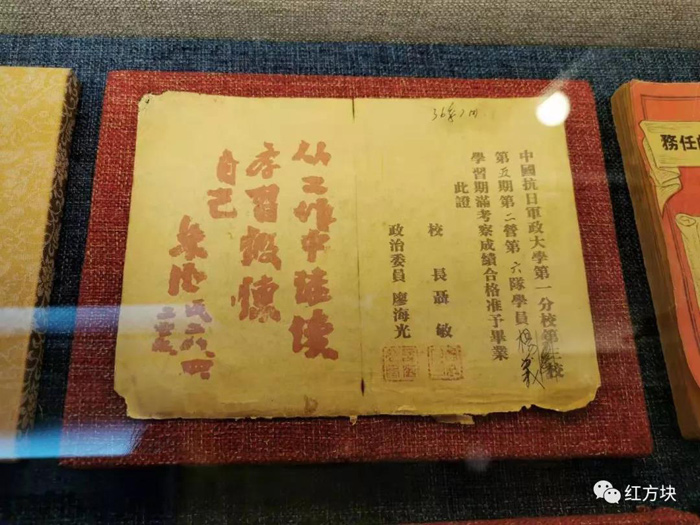 中國抗日軍政大學第一分校第
第五期第二營第六隊學員楊
學習期滿考察成績合格准予畢業
此證
校長聶敏
政治委員廖海光
从工作中继续
学習
自己
朱德
務任
红方块